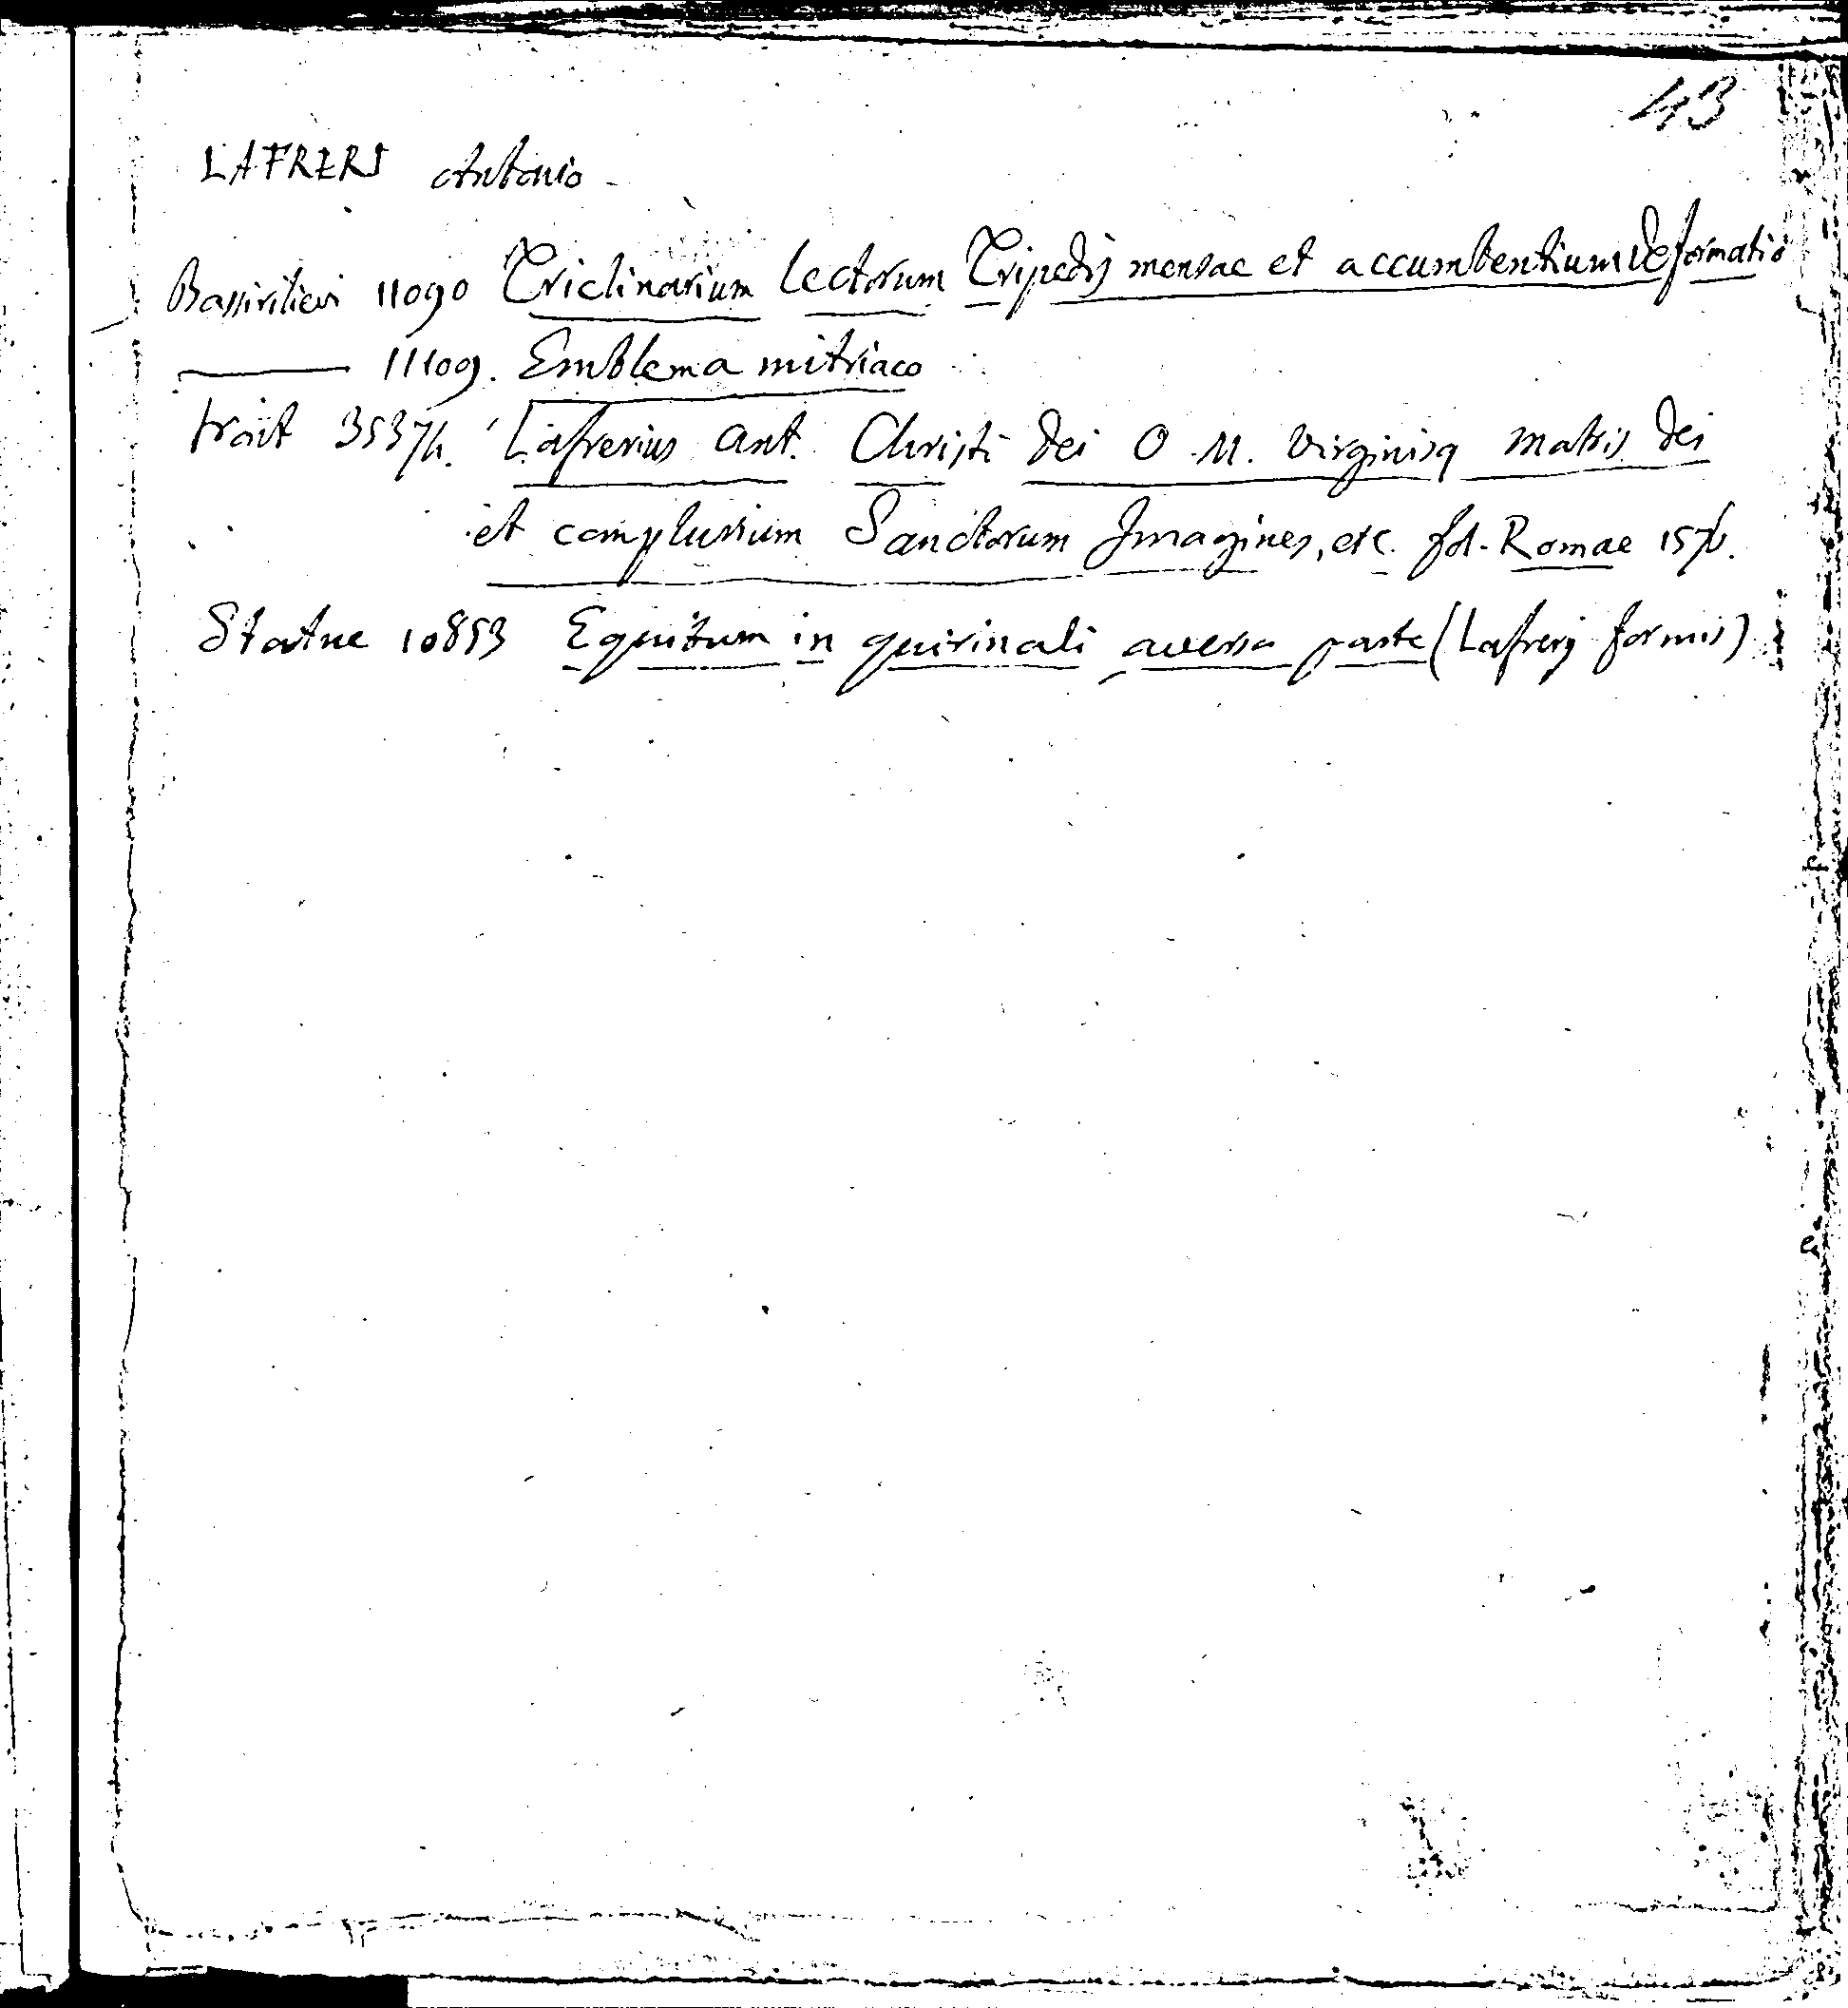 43
LAFRERI Antonio
Bassirilievi 11090 Triclinarium Lectorum Tripedis mensae et accumbentium deformatio
—— 11109. Emblema mitriaco
trait Lafrerius ant. Christi dei O. M. virginisq matris dei
et complurium Sanctorum Imagines, etc. fol. Romae
Statue 10853 Equitum in quirinali aversa parte (Lafrerj formis)